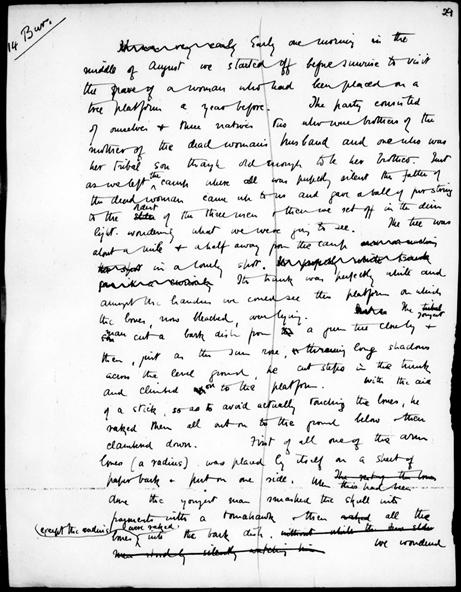 29
14 Bur.
Early one morning in the
middle of August we started off before sunrise to visit
the grave of a woman who had been placed on a
tree platform a year before. The party consisted
of ourselves + three natives two who were brothers of the
mother of the dead woman's husband and one who was
her tribal son though old enough to be her brother. Just
as we left the camp where all was perfectly silent the father of
the dead woman came up to us and gave a ball of fur string
to the eldest of the three men + then we set off in the dim
light wondering what we were going to see. The tree was
about a mile + a half away from the camp
in a lonely spot. Its trunk was perfectly white and
amongst the branches we could see the platform on which
the bones, now bleached, were lying. The youngest
man cut a bark dish from a gum tree close by +
then, just as the sun rose, throwing long shadows
across the level ground, he cut steps in the trunk
and climbed on to the platform. With the aid
of a stick, so as to avoid actually touching the bones, he
raked them all out on to the ground below + then
clambered down. First of all one of the arm
bones (a radius) was placed by itself on a sheet of
paper bark + put on one side. When this had been
done the youngest man smashed the skull into
fragments with a tomahawk + then all the
(except the radius) bones were raked into the bark dish.
we wondered